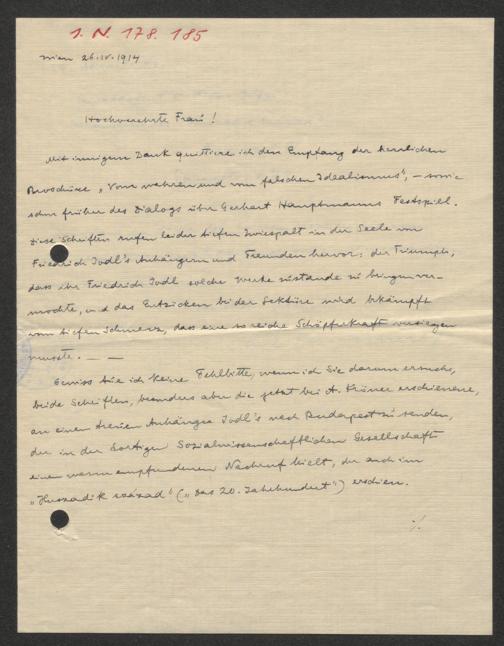 I. N. 178.185
Wien 26.IV.1914
Hochverehrte Frau!
Mit innigem Dank quittiere ich den Empfang der herrlichen
Broschüre „Vom wahren und vom falschen Idealismus", – sowie
schon früher des Dialogs über Gerhart Hauptmanns Festspiel.
Diese Schriften rufen leider tiefen Zwiespalt in der Seele von
Friedrich Jodl's Anhängern und Freunden hervor: der Triumph,
dass ihr Friedrich Jodl solche Werke zustande zu bringen ver-
mochte, und das Entzücken bei der Lektüre wird bekämpft
vom tiefen Schmerz, dass eine so reiche Schöpferkraft versiegen
musste. — —
Gewiss tue ich keine Fehlbitte, wenn ich Sie darum ersuche,
beide Schriften, besonders aber die jetzt bei A. Kröner erschienene,
an einen treuen Anhänger Jodl's nach Budapest zu senden,
der in der dortigen Sozialwissenschaftlichen Gesellschaft
einen warm empfundenen Nachruf hielt, der auch im
„Huszadik század" („Das 20. Jahrhundert") erschien.
./.